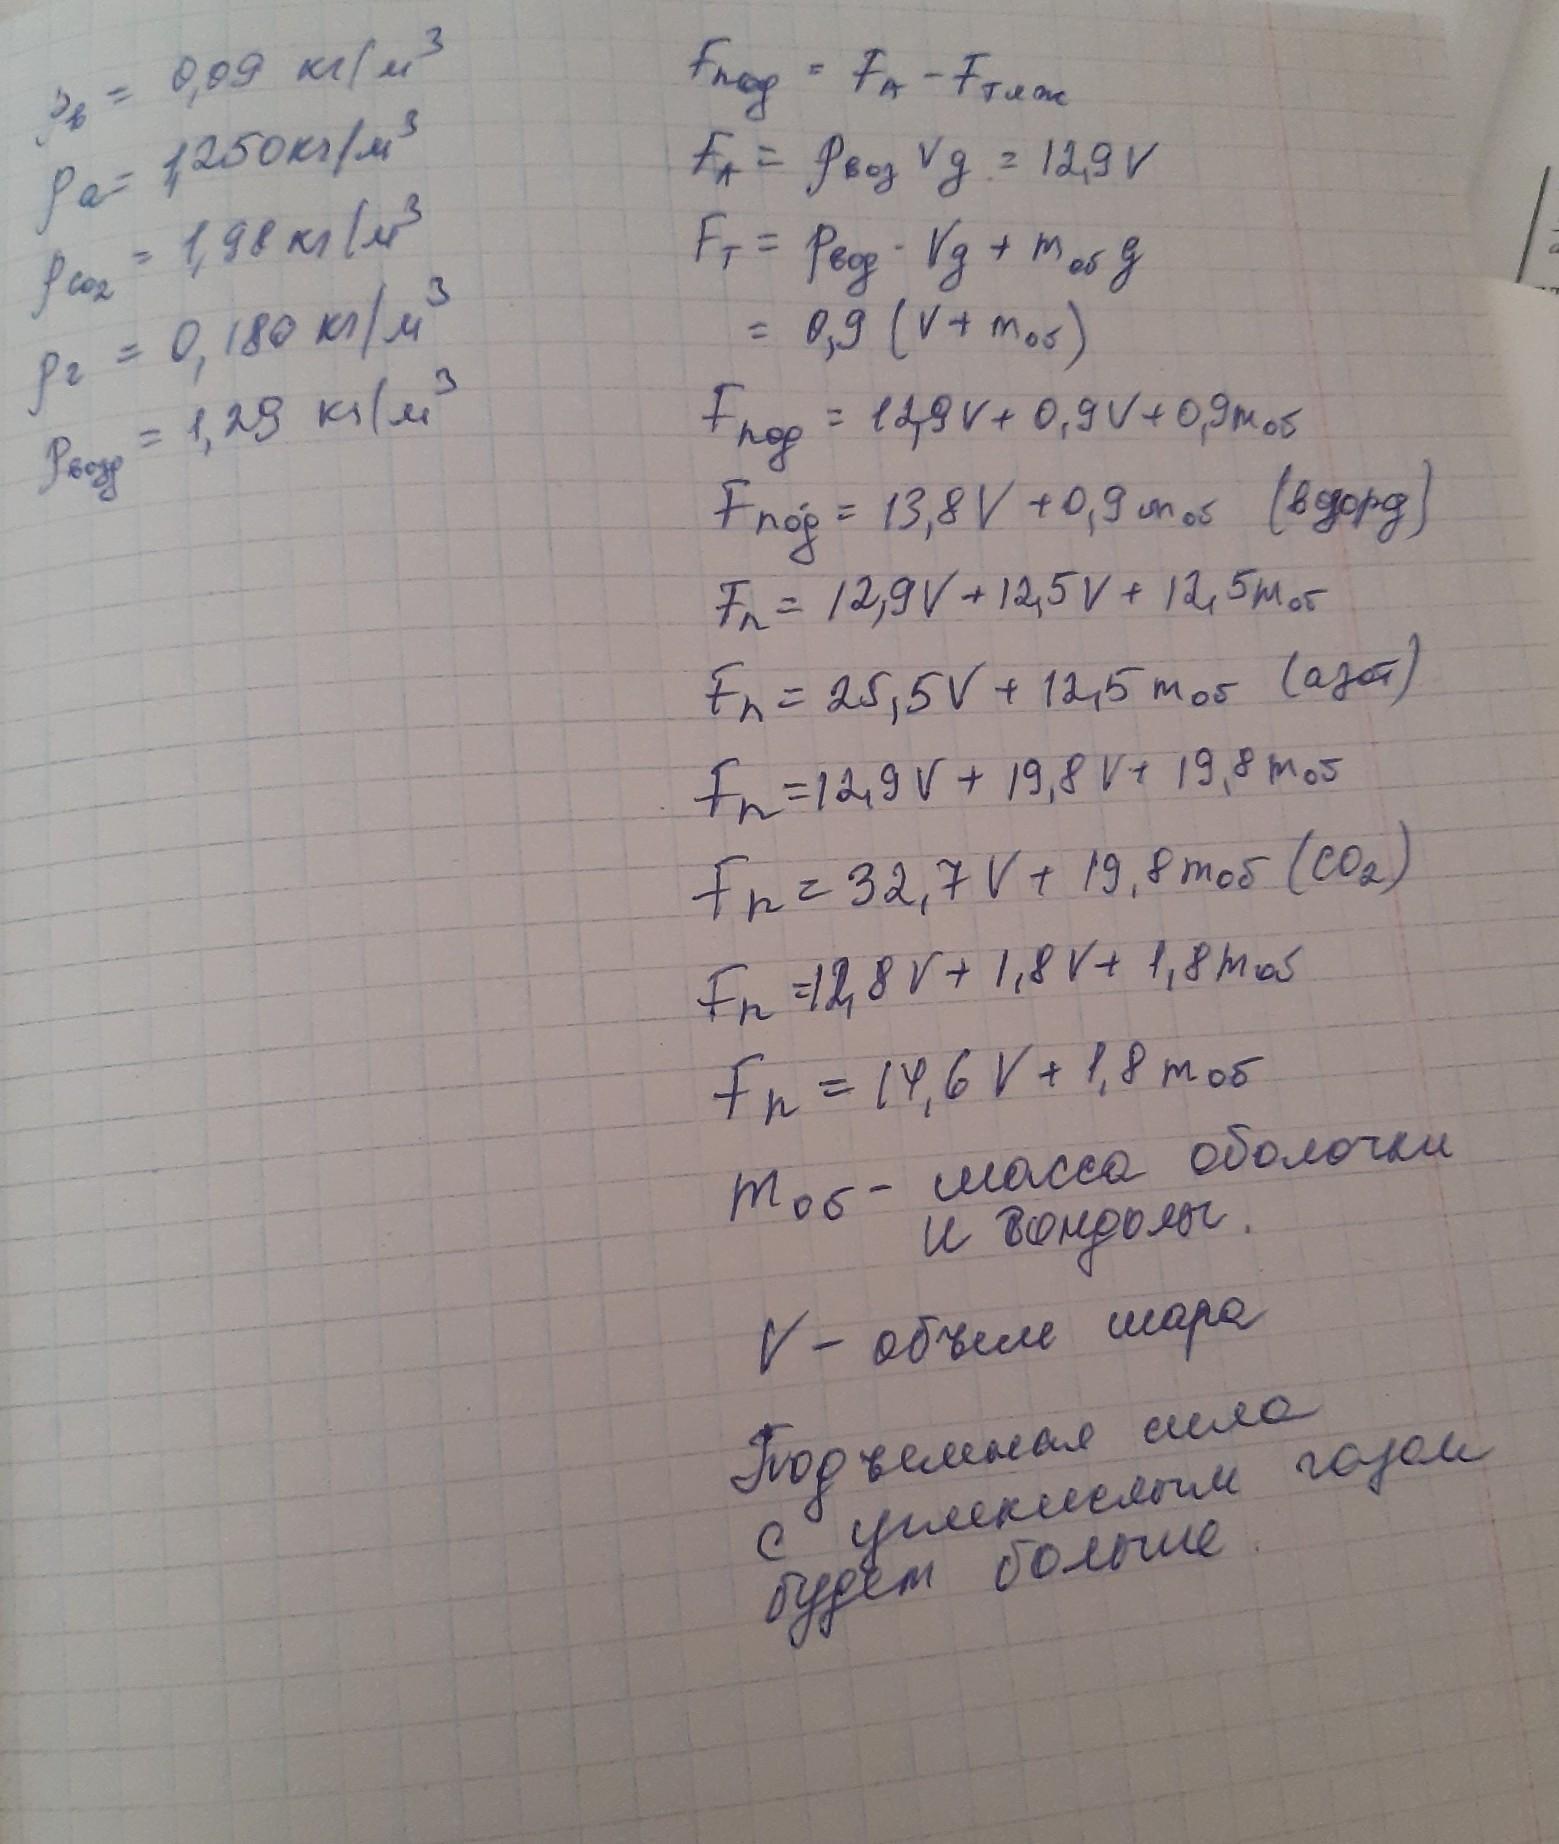 ρв = 0,09 кг/м³
ρа = 1,250 кг/м³
ρco₂ = 1,98 кг/м³
ρг = 0,180 кг/м³
ρвозд = 1,29 кг/м³
Fпод = FА - Fтяж
FА = ρвоз Vg = 12,9V
Fт = ρвод · Vg + mоб g
= 0,9 (V + mоб)
Fпод = 12,9V + 0,9V + 0,9mоб
Fпод = 13,8V + 0,9mоб (вдорд)
Fп = 12,9V + 12,5V + 12,5mоб
Fп = 25,5V + 12,5mоб (азот)
Fп = 12,9V + 19,8V + 19,8mоб
Fп = 32,7V + 19,8mоб (CO₂)
Fп = 12,8V + 1,8V + 1,8mоб
Fп = 14,6V + 1,8mоб
mоб - масса оболочки
и гондолы.
V - объем шара
Подъемная сила
с углекислым газом
будет больше.